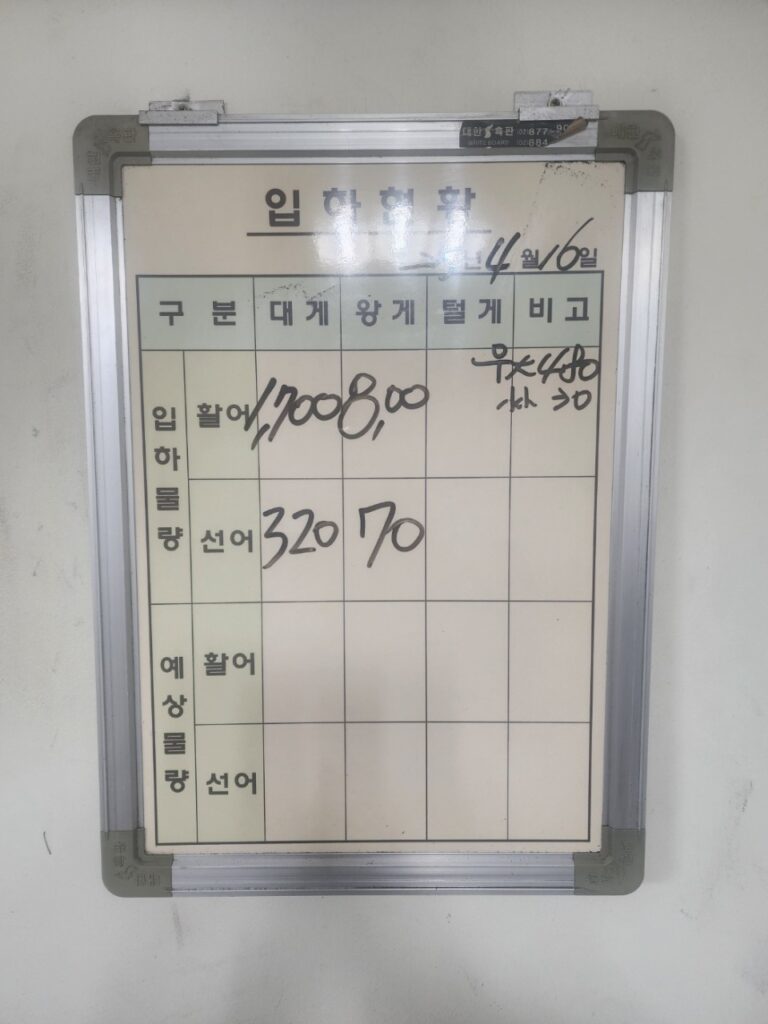 대한 칠판 (02)877~90
WHITE BOARD (02)884
입하현황
년 4월 16일
구분 대게 왕게 털게 비고
입하물량 활어 1,700 8,00 480
30
선어 320 70
예상물량 활어
선어